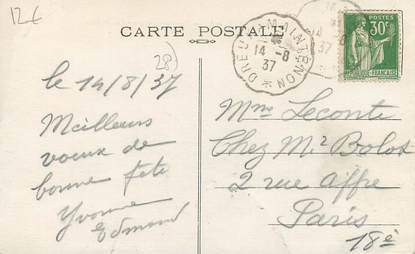 12€
28)
CARTE POSTALE
14 - 8
37
POSTES
30c
le 14/8/37
Meilleurs
voeux de
bonne fête
Yvonne
Edmond
Mme Leconte
Chez Mr Bolot
2 rue Affre
Paris
18è